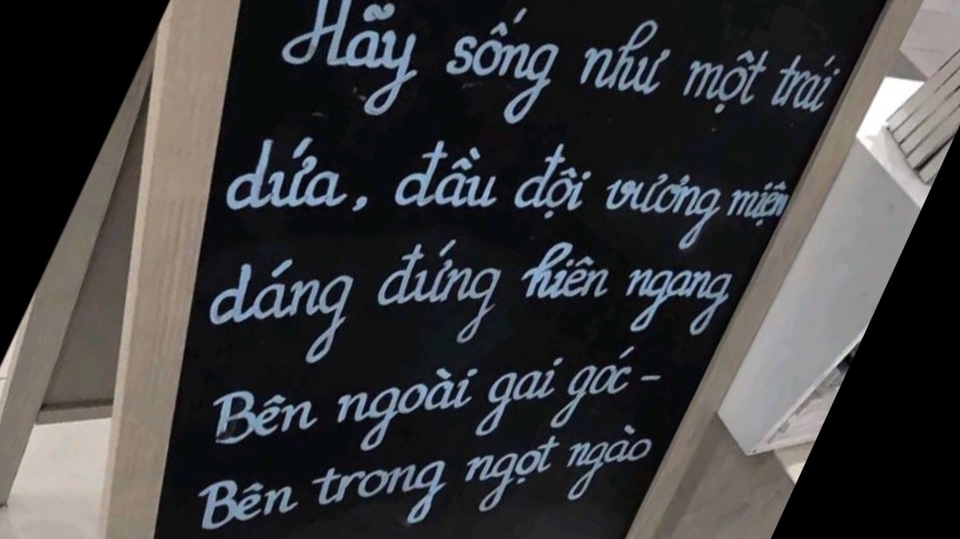 Hãy sống như một trái
dứa, đầu đội vương miện
dáng đứng hiên ngang
Bên ngoài gai góc -
Bên trong ngọt ngào